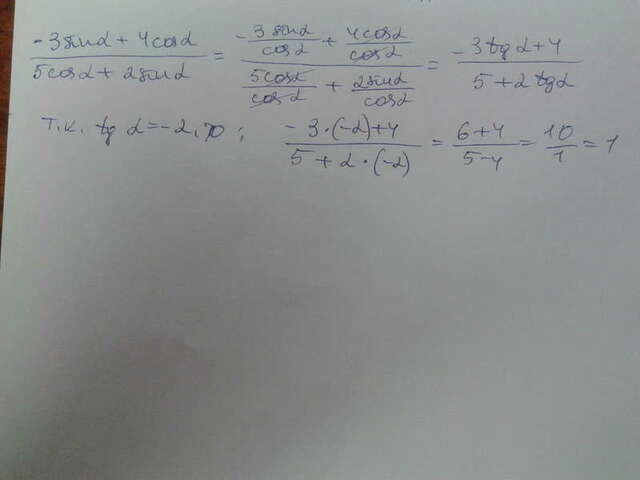 (-3sinα + 4cosα)/(5cosα + 2sinα) = (-3sinα/cosα + 4cosα/cosα)/(5cosα/cosα + 2sinα/cosα) = (-3tgα + 4)/(5 + 2tgα)
Т.К. tgα = -2, то ; (-3·(-2)+4)/(5+2·(-2)) = (6+4)/(5-4) = 10/1 = 1